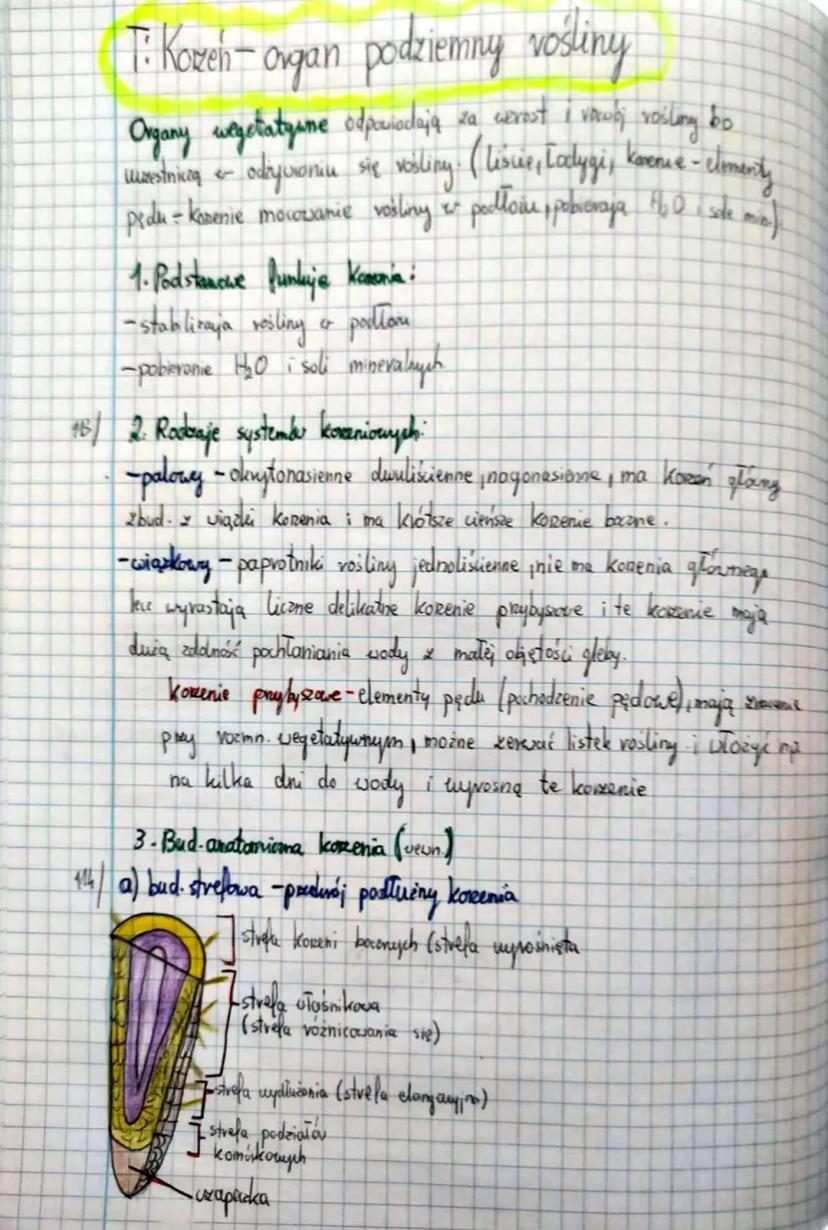 T: Korzeń - organ podziemny rośliny
Organy wegetatywne odpowiadają za wzrost i rozwój rośliny bo
uczestniczą w odżywianiu się rośliny. (liście, łodygi, korzenie - elementy
pędu - korzenie mocowanie rośliny w podłożu, pobierają H₂O i sole min.)
1. Podstawowe funkcje korzenia:
- stabilizacja rośliny w podłożu
- pobieranie H₂O i soli mineralnych
113/ 2. Rodzaje systemów korzeniowych:
- palowy - okrytonasienne dwuliścienne, nagonasienne, ma korzeń główny
zbud. z wiązki korzenia i ma krótsze cieńsze korzenie boczne.
- wiązkowy - paprotniki rośliny jednoliścienne, nie ma korzenia głównego
lecz wyrastają liczne delikatne korzenie przybyszowe i te korzenie mają
dużą zdolność pochłaniania wody z małej objętości gleby.
korzenie przybyszowe - elementy pędu (pochodzenie pędowe), mają znaczenie
przy rozmn. wegetatywnym, możne zerwać listek rośliny i włożyć np
na kilka dni do wody i wyrosną te korzenie
3. Bud. anatomiczna korzenia (wewn.)
114/ a) bud. strefowa - przekrój podłużny korzenia
strefa korzeni bocznych (strefa wyrośnięta
strefa włośnikowa
(strefa różnicowania się)
strefa wydłużania (strefa elongacyjna)
strefa podziałów
komórkowych
czapeczka